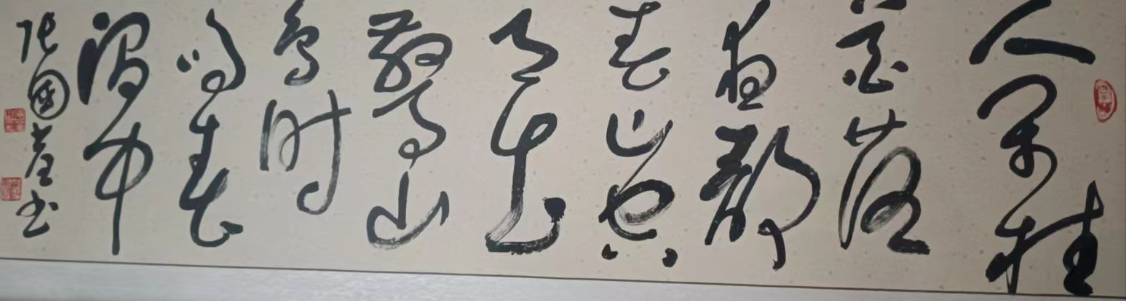 人閒桂
花落
夜静
春山空
月出
驚山
鸟时
鸣春
涧中
张國书